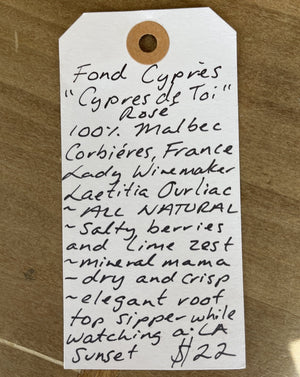 Fond Cyprès
"Cypres de Toi"
Rosé
100% Malbec
Corbiéres, France
Lady Winemaker
Laetitia Ourliac
~ ALL NATURAL
~ Salty berries
and lime zest
~ mineral mama
~ dry and crisp
~ elegant roof
top sipper while
watching a LA
Sunset $22